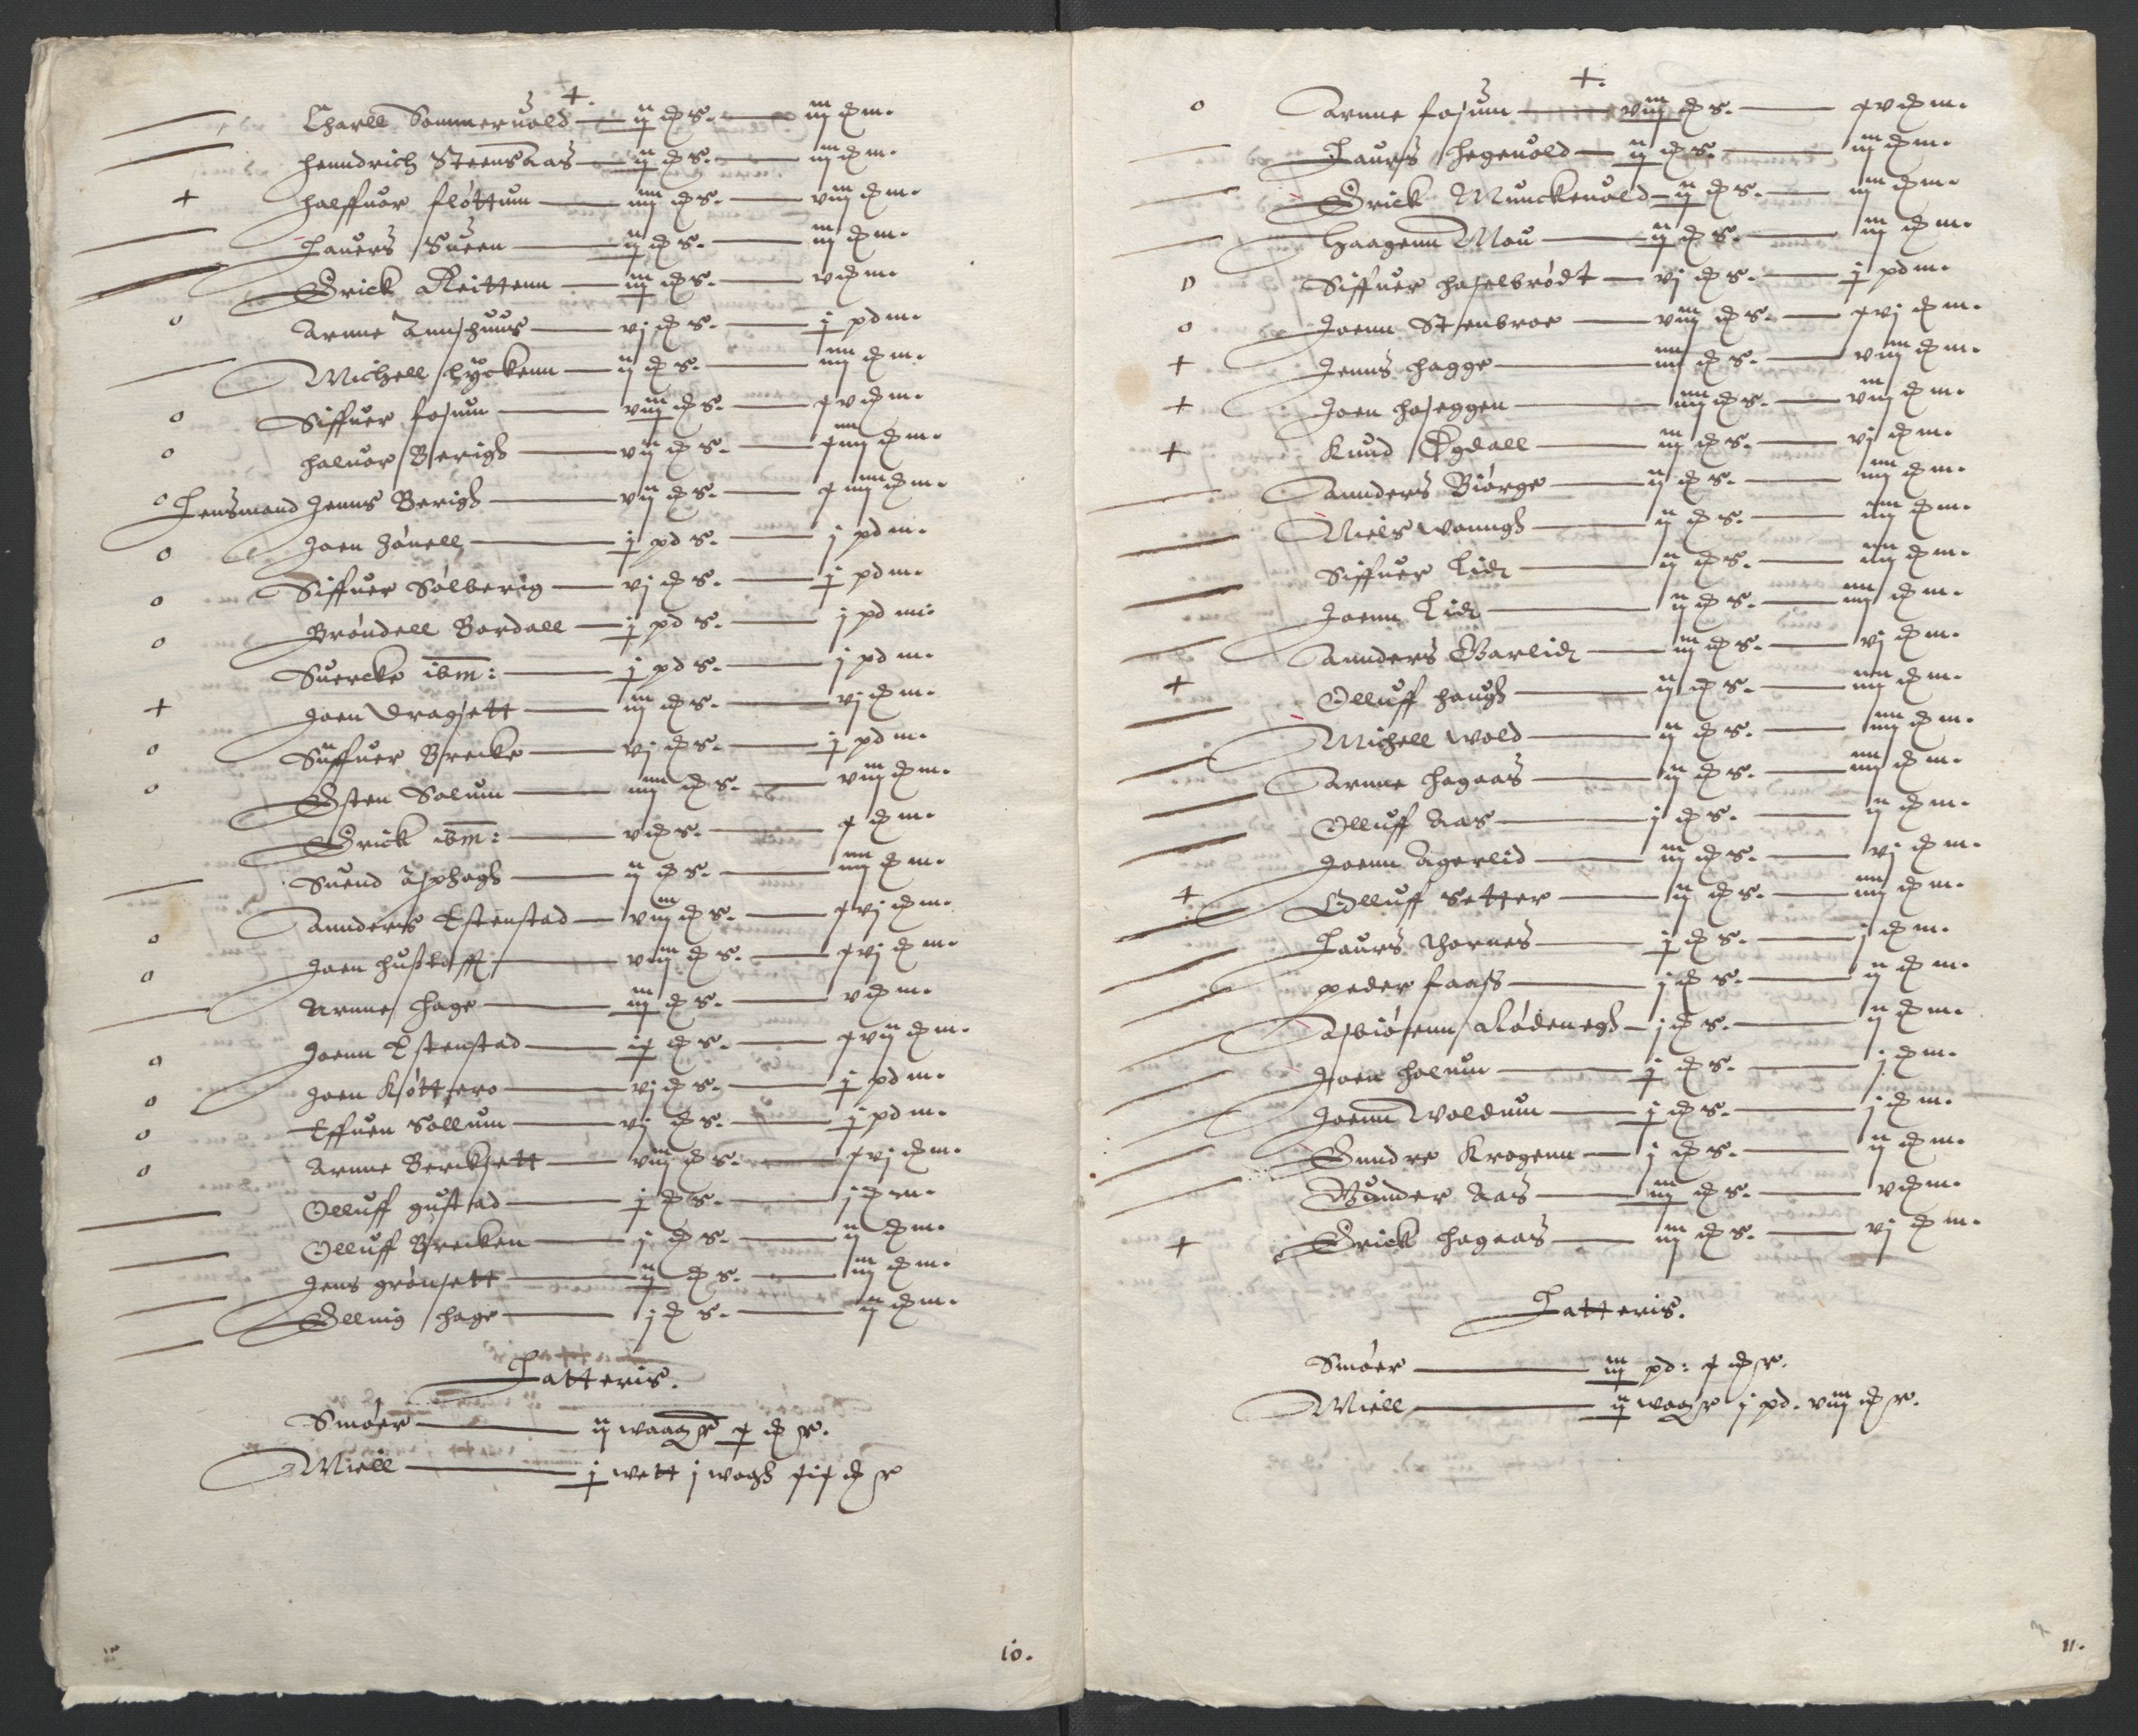 +.
Charll Sommeruold — ij ₰ s. — iij ₰ m.
Henndrich Steensaas — ij ₰ s. — iij ₰ m.
+ Halffuor Fløttum — iiij ₰ s. — viij ₰ m.
Lauers Sueen — ij ₰ s. — iij ₰ m.
Erick Reittenn — iij ₰ s. — v ₰ m.
o Arnne — vj ₰ s. — j pd m.
Michell Lyckenn — ij ₰ s. — iiij ₰ m.
o Siffuer Fosum — viij ₰ s. — xv ₰ m.
o Haluor Berigh — vij ₰ s. — xiiij ₰ m.
o Lensmand Jenns Berigh — vij ₰ s. — xiiij ₰ m.
o Joen — j pd s. — j pd m.
o Siffuer Sølberig — vj ₰ s. — j pd m.
o Brøndell Bordall — j pd s. — j pd m.
Suercke ibm: — j pd s. — j pd m.
+ Joen Dragsett — iij ₰ s. — vj ₰ m.
o Siffuer Brecke — vj ₰ s. — j pd m.
o Esten Solum — iiij ₰ s. — viij ₰ m.
Erick ibm: — v ₰ s. — x ₰ m.
Suend Asphagh — ij ₰ s. — iiij ₰ m.
o Annders Estenstad — viij ₰ s. — xvj ₰ m.
o Joen — viij ₰ s. — xvj ₰ m.
Arnne Hage — iij ₰ s. — v ₰ m.
o Joenn Estenstad — ix ₰ s. — xvij ₰ m.
o Joen Kiøttsero — vj ₰ s. — j pd m.
o Effuen Sollum — vj ₰ s. — j pd m.
o Arnne Bercksett — viij ₰ s. — xvj ₰ m.
Olluff Gustad — j ₰ s. — j ₰ m.
Olluff Brecken — j ₰ s. — ij ₰ m.
Jens Grønsett — ij ₰ s. — iij ₰ m.
Ellnig Hage — j ₰ s. — ij ₰ m.
Latteris.
Smøer — ij waager x ₰ r.
Miell — j wett j wogh xix ₰ r
10.
+.
o Arnne Fosum — viij ₰ s. — xv ₰ m.
Laurs Hegeuold — ij ₰ s. — iij ₰ m.
Erick Munckeuold — ij ₰ s. — iij ₰ m.
Haagenn Mou — ij ₰ s. — iij ₰ m.
o Siffuer Haselbrødt — vj ₰ s. — j pd m.
o Joenn Stenbroe — viij ₰ s. — xvj ₰ m.
+ Jenns Hagge — iiij ₰ s. — viij ₰ m.
+ Joen Haseggen — iiij ₰ s. — viij ₰ m.
+ Knud Egdall — iij ₰ s. — vj ₰ m.
Annders Biørge — ij ₰ s. — iiij ₰ m.
Niels Wanngh — ij ₰ s. — iiij ₰ m.
Siffuer Lid — ij ₰ s. — iiij ₰ m.
Joenn Lid — ij ₰ s. — iiij ₰ m.
Annders Garlid — iij ₰ s. — vj ₰ m.
+ Olluff Haugh — ij ₰ s. — iiij ₰ m.
Michell Wold — ij ₰ s. — iiij ₰ m.
Arnne Hagaas — ij ₰ s. — iiij ₰ m.
Olluff Aas — j ₰ s. — ij ₰ m.
Joenn Agerlid — iij ₰ s. — vj ₰ m.
+ Olluff Setter — ij ₰ s. — iiij ₰ m.
Laurs Hornes — j ₰ s. — j ₰ m.
Peder Faass — j ₰ s. — ij ₰ m.
Asbiørnn Rødenegh — j ₰ s. — ij ₰ m.
Joen Holum — j ₰ s. — j ₰ m.
Joenn Woldum — j ₰ s. — j ₰ m.
Gundre Krogenn — j ₰ s. — ij ₰ m.
Gunder Aas — iij ₰ s. — v ₰ m.
+ Erick Hagaas — iij ₰ s. — vj ₰ m.
Latteris.
Smøer — iij pd: x ₰ r.
Miell — ij woger j pd. viij ₰ r.
11.